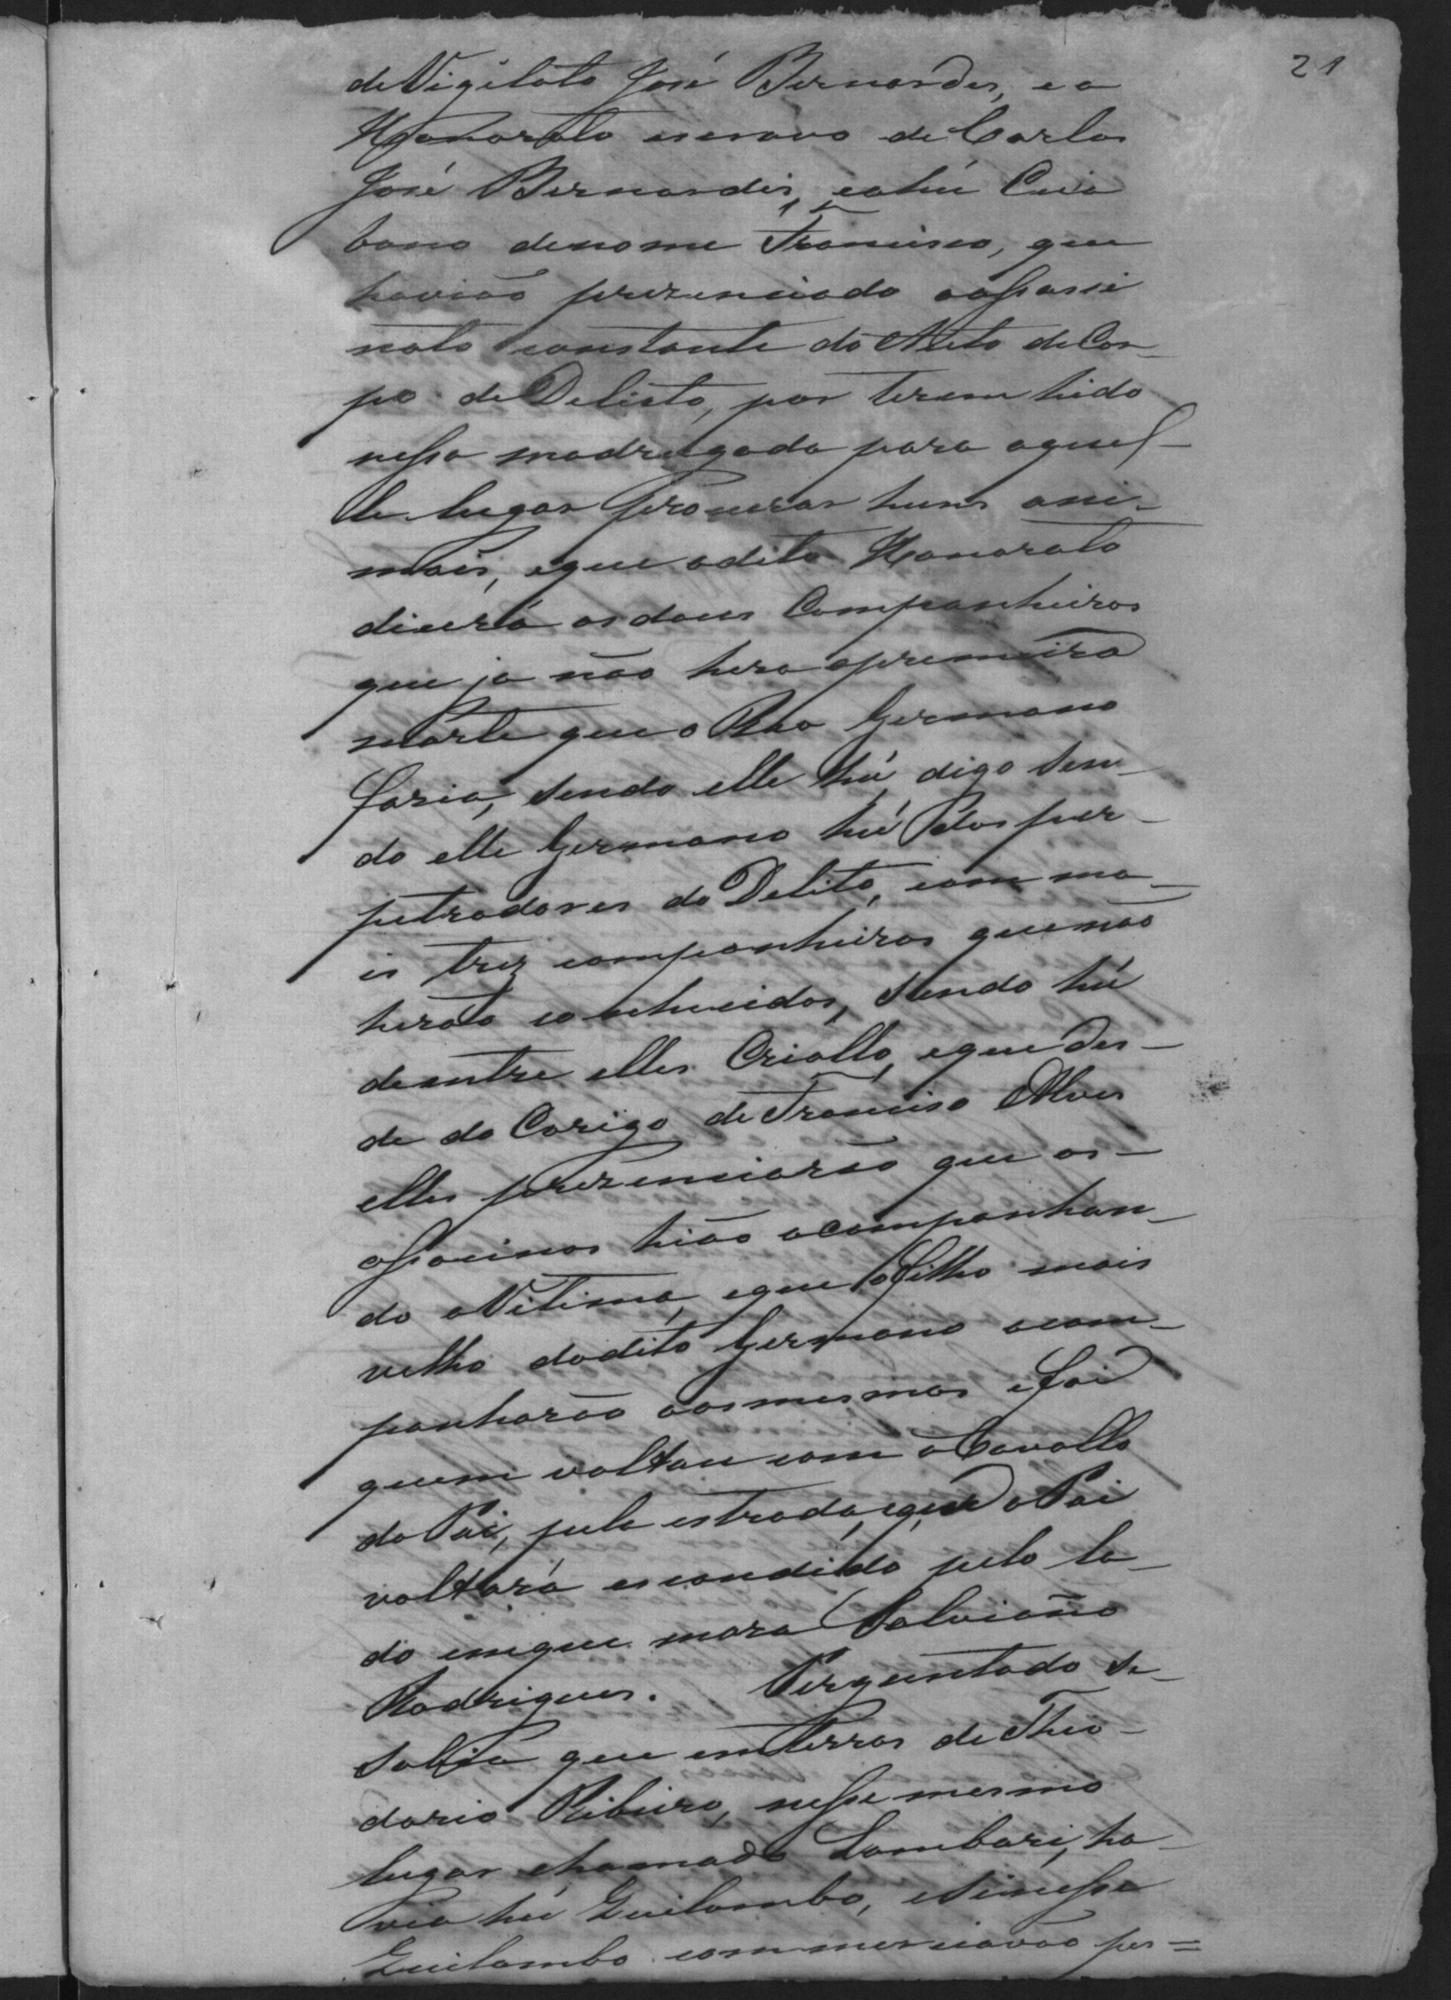 21
de Vigilato José Bernardes, e a
Honorato escravo de Carlos
José Bernardes, e a hú Cuia
bano de nome Francisco, que
havião prezenciado o assassi
nato constante do Auto de Cor-
po de Delicto, por terem hido
nessa madrugada para aquel-
le lugar procurar huns ani-
mais, e que o dito Honorato
dicéra os dous Companheiros
que ja não hera a premeira
morte que o Reo Germano
faria, sendo elle hú, digo sen-
do elle Germano hú dos per-
petradores do Delito, com ma-
is trez companheiros que não
herão conhecidos, sendo hú
dentre elles Criollo, e que des-
de do Corigo de Francisco Alves
elles prezenciarão que os-
assacinos hião acompanhan-
do a Vitima, e que o filho mais
velho do dito Germano acom-
panharão aos mesmos e foi
quem voltou com o Cavallo
do Pai, pela estrada, e que o Pai
voltará escondido pelo la-
do em que mora Salviano
Rodrigues. Perguntado se-
sabia que em terras de Theo-
dorio Ribeiro, nesse mesmo
lugar chamado Lambari, ha-
via hú Quilombo, e se nesse
Quilombo commerciavão per=